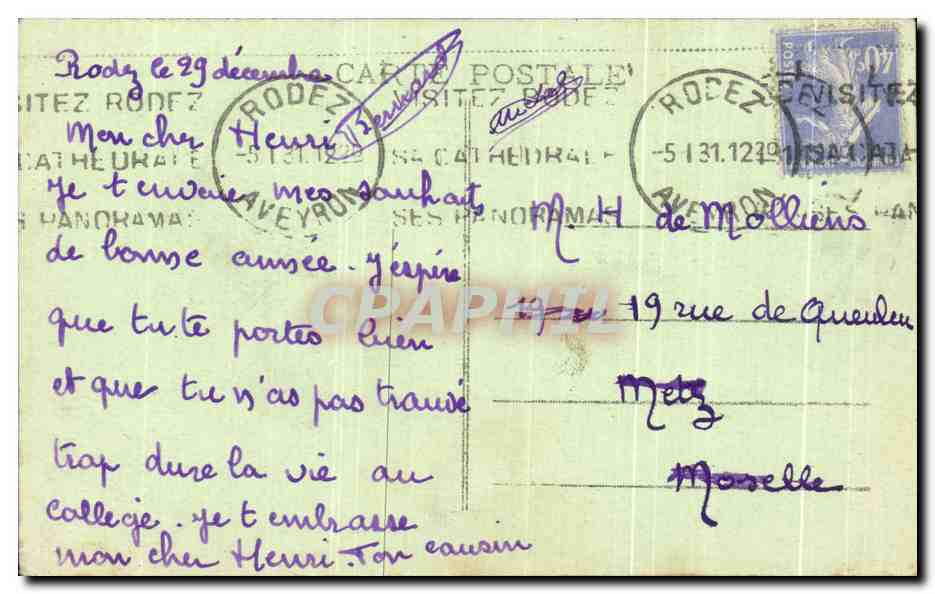 Rodez le 29 décembre
CARTE POSTALE
Bernard
Michel
Mon cher Henri
Je t'envoie mes souhaits
de bonne année. J'espère
que tu te portes bien
et que tu n'as pas trouvé
trop dure la vie au
collège. Je t'embrasse
mon cher Henri. Ton cousin
M. H de Molliens
19 19 rue de Queuleu
Metz
Moselle
VISITEZ RODEZ
SA CATHEDRALE
SES PANORAMAS
RODEZ
-5 1 31. 12
AVEYRON
RODEZ
-5 1 31. 12
AVEYRON
VISITEZ
40c
POSTES
CPAPHIL